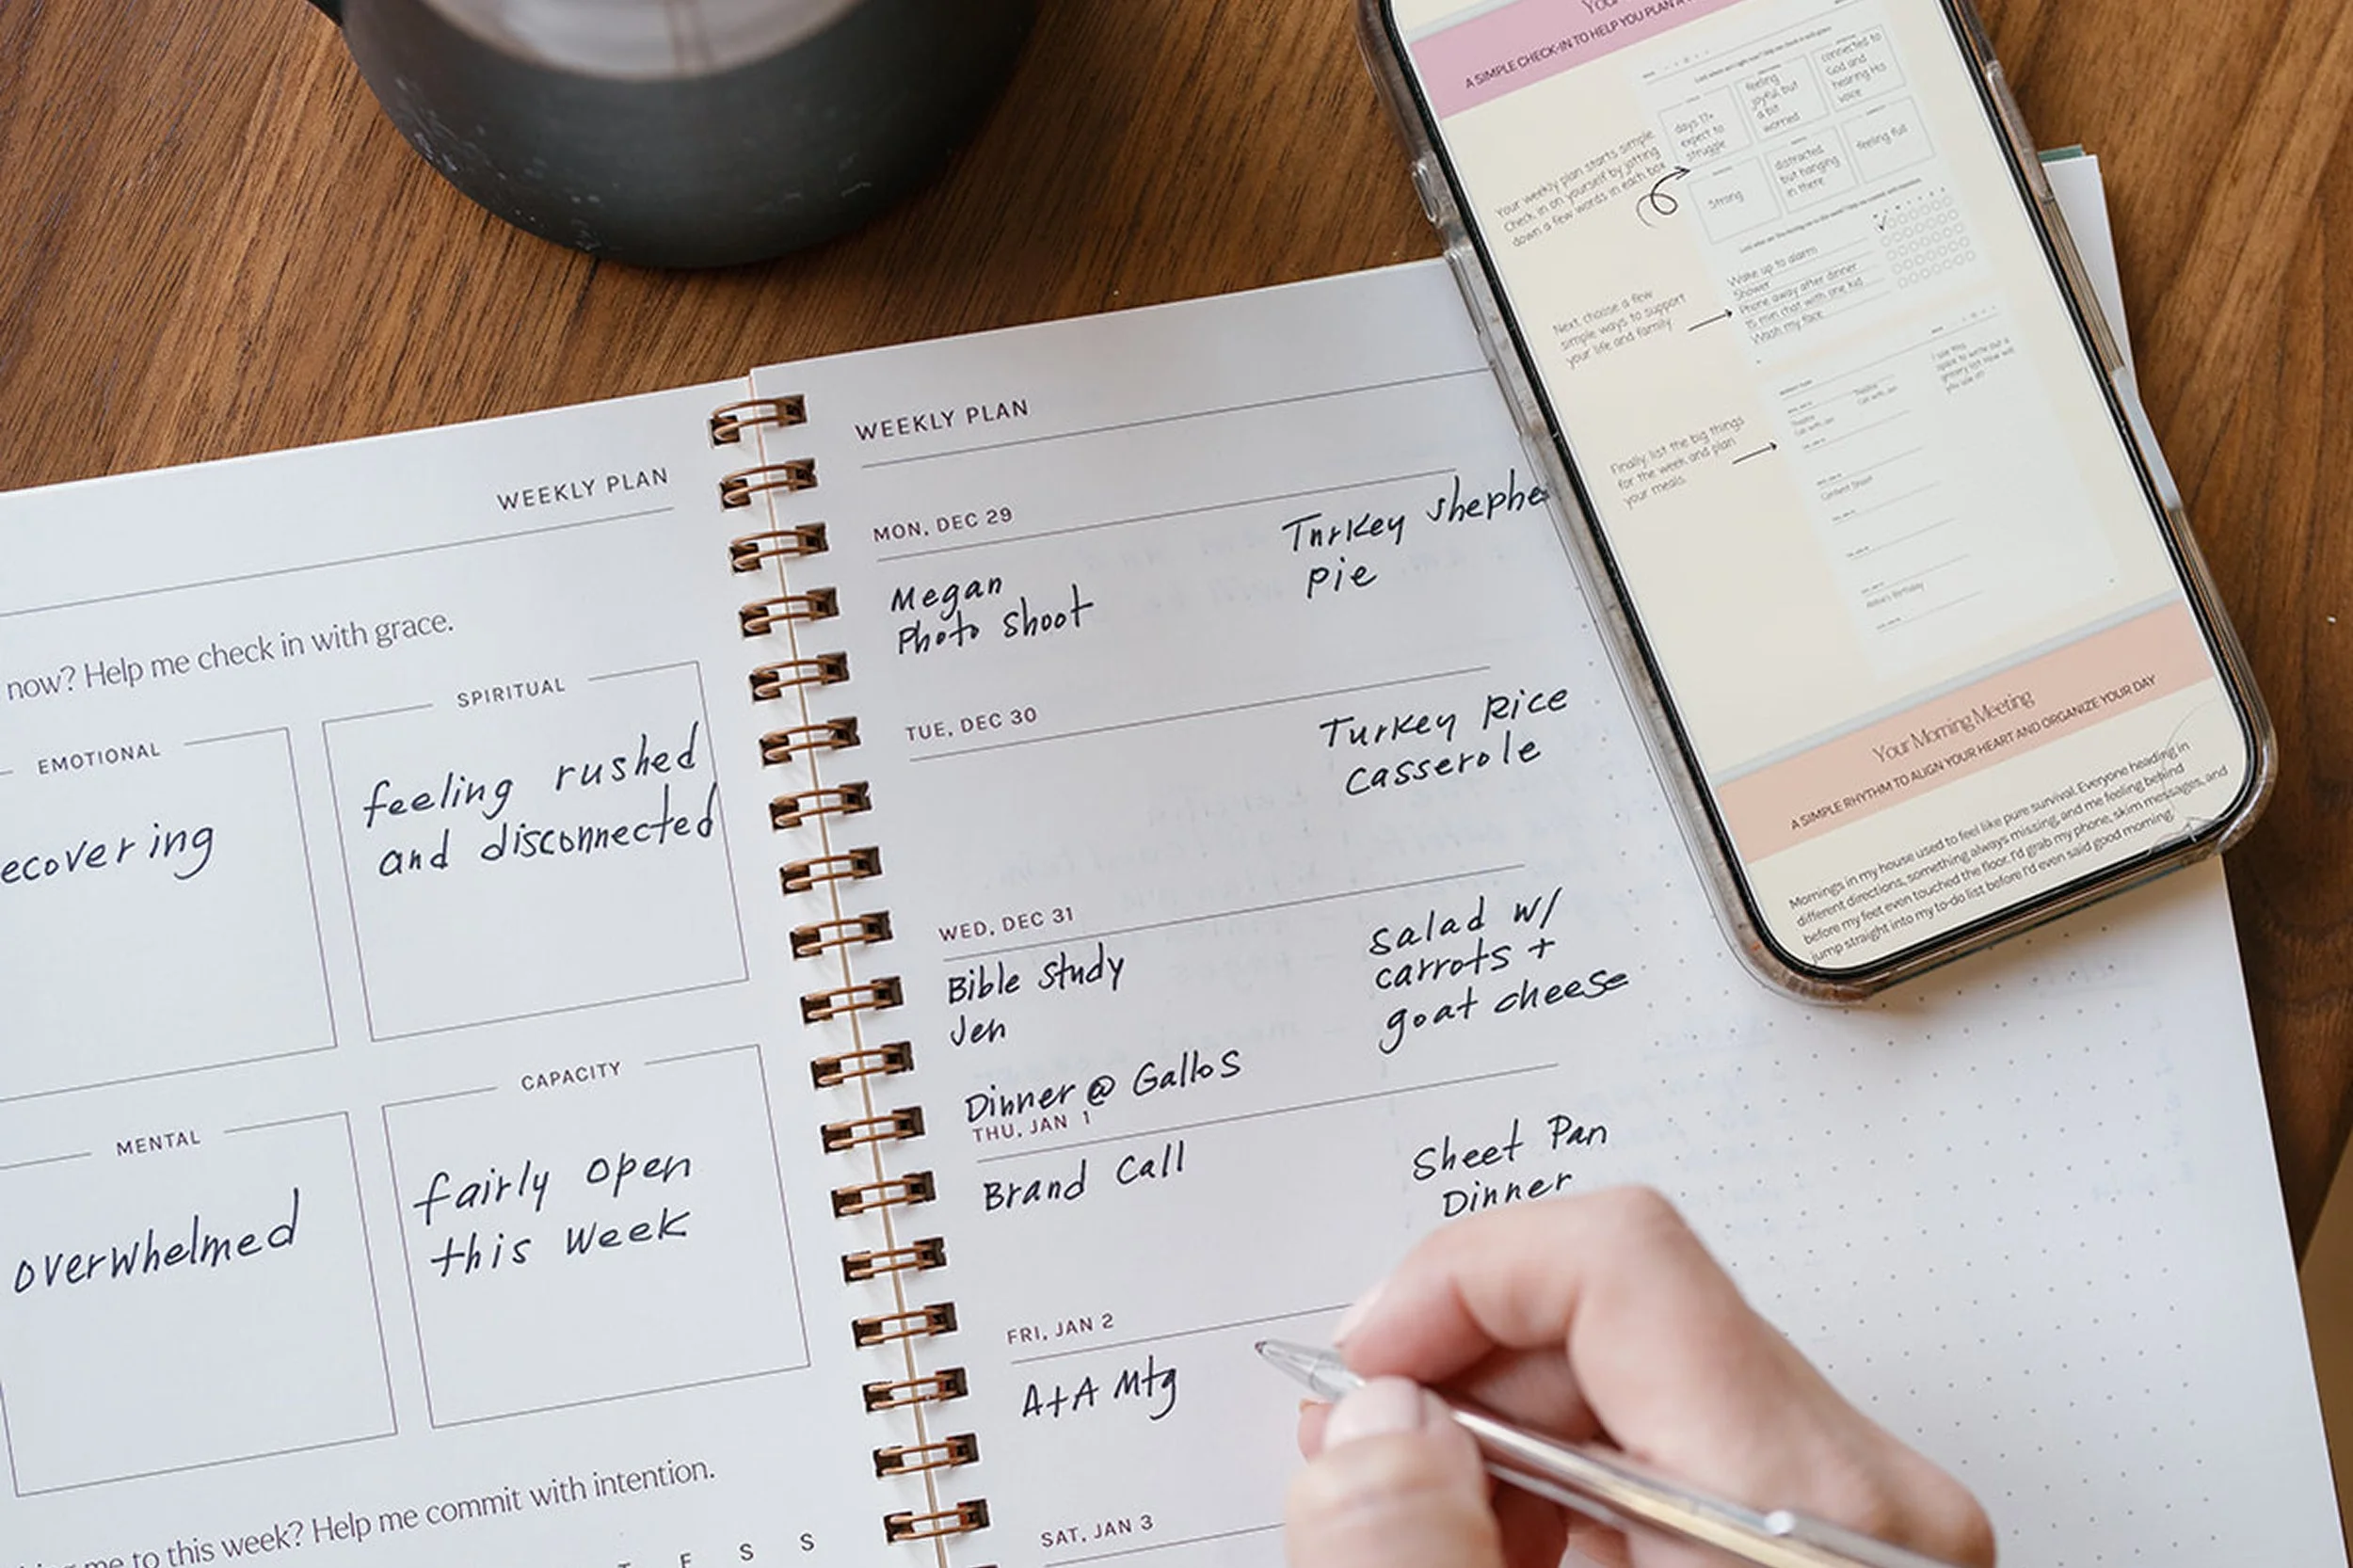 WEEKLY PLAN
now? Help me check in with grace.
EMOTIONAL
ecovering
SPIRITUAL
feeling rushed
and disconnected
MENTAL
overwhelmed
CAPACITY
fairly open
this week
me to this week? Help me commit with intention.
T F S S
WEEKLY PLAN
MON, DEC 29
Megan
Photo Shoot
Turkey Shephe
pie
TUE, DEC 30
Turkey Rice
Casserole
WED, DEC 31
Bible Study
Jen
Dinner @ Gallos
Salad w/
carrots +
goat cheese
THU, JAN 1
Brand Call
Sheet Pan
Dinner
FRI, JAN 2
A+A Mtg
SAT, JAN 3
A SIMPLE CHECK-IN TO HELP YOU PLAN A
Your weekly plan starts simple.
Check in on yourself by jotting
down a few words in each box
days 17+
expect to
struggle
feeling
joyful but
a bit
worried
connected to
God and
hearing His
voice
Strong
distracted
but hanging
in there
feeling full
Next choose a few
simple ways to support
your life and family
Wake up to alarm
Shower
Phone away after dinner
15 min chat with one kid
Wash my face
Finally, list the big things
for the week and plan
your meals.
I use this
space to write out a
grocery list
Content Shoot
Birthday
Your Morning Meeting
A SIMPLE RHYTHM TO ALIGN YOUR HEART AND ORGANIZE YOUR DAY
Mornings in my house used to feel like pure survival. Everyone heading in
different directions, something always missing, and me feeling behind
before my feet even touched the floor. I'd grab my phone, skim messages, and
jump straight into my to-do list before I'd even said good morning.